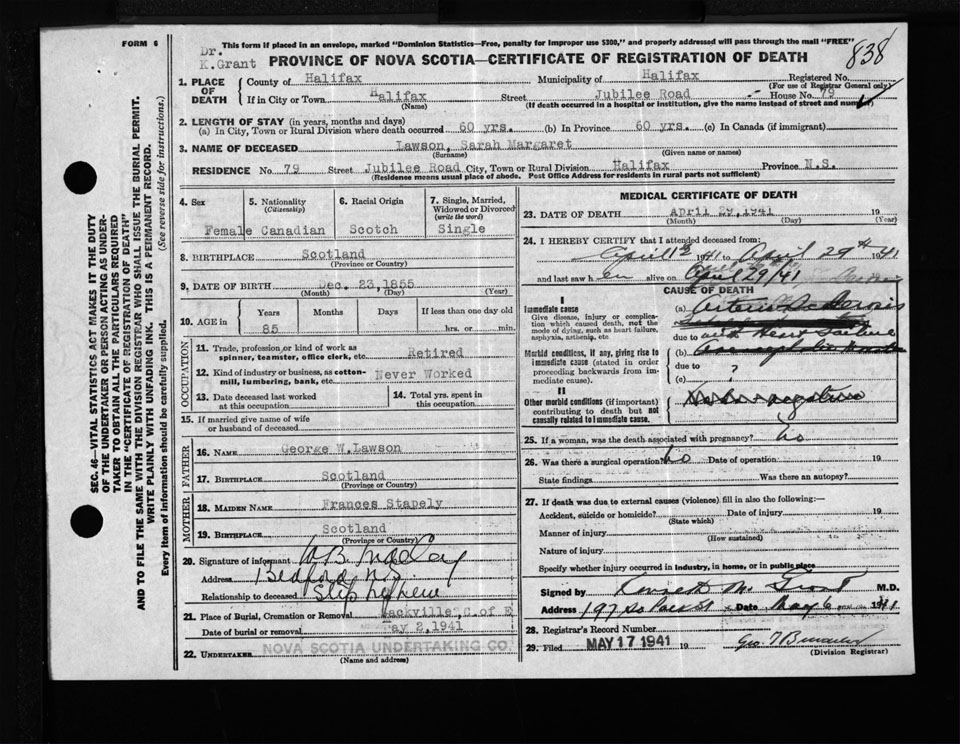 FORM 6
This form if placed in an envelope, marked "Dominion Statistics—Free, penalty for improper use $300," and properly addressed will pass through the mail "FREE"
838
Dr.
K.Grant
PROVINCE OF NOVA SCOTIA—CERTIFICATE OF REGISTRATION OF DEATH
1. PLACE OF DEATH
County of Halifax Municipality of Halifax Registered No.
(For use of Registrar General only)
If in City or Town Halifax Street Jubilee Road House No. 79
(Name) (If death occurred in a hospital or institution, give the name instead of street and number)
2. LENGTH OF STAY (in years, months and days)
(a) In City, Town or Rural Division where death occurred 60 yrs. (b) In Province 60 yrs. (c) In Canada (if immigrant)
3. NAME OF DECEASED Lawson, Sarah Margaret
(Surname) (Given name or names)
RESIDENCE No. 79 Street Jubilee Road City, Town or Rural Division Halifax Province N.S.
(Residence means usual place of abode. Post Office Address for residents in rural parts not sufficient)
4. Sex 5. Nationality (Citizenship) 6. Racial Origin 7. Single, Married, Widowed or Divorced (write the word)
Female Canadian Scotch Single
8. BIRTHPLACE Scotland
(Province or Country)
9. DATE OF BIRTH Dec. 23,1855
(Month) (Day) (Year)
10. AGE in Years Months Days If less than one day old
85 hrs. or min.
OCCUPATION
11. Trade, profession or kind of work as spinner, teamster, office clerk, etc. Retired
12. Kind of industry or business, as cotton-mill, lumbering, bank, etc. Never Worked
13. Date deceased last worked at this occupation
14. Total yrs. spent in this occupation
15. If married give name of wife or husband of deceased
FATHER
16. NAME George W.Lawson
17. BIRTHPLACE Scotland
(Province or Country)
MOTHER
18. MAIDEN NAME Frances Stapely
19. BIRTHPLACE Scotland
(Province or Country)
20. Signature of informant
Address Bedford N.S.
Relationship to deceased Step nephew
21. Place of Burial, Cremation or Removal Sackville, C.of E
Date of burial or removal May 2,1941
22. UNDERTAKER NOVA SCOTIA UNDERTAKING CO.
(Name and address)
MEDICAL CERTIFICATE OF DEATH
23. DATE OF DEATH April 29,1941 19
(Month) (Day) (Year)
24. I HEREBY CERTIFY that I attended deceased from:
1941 to April 29th 1941
and last saw h er alive on April 29/41
CAUSE OF DEATH
I
Immediate cause
Give disease, injury or complication which caused death, not the mode of dying, such as heart failure, asphyxia, asthenia, etc
(a)
due to
Morbid conditions, if any, giving rise to immediate cause (stated in order proceeding backwards from immediate cause).
(b)
due to ?
(c)
II
Other morbid conditions (if important) contributing to death but not causally related to immediate cause.
25. If a woman, was the death associated with pregnancy? No
26. Was there a surgical operation? No Date of operation 19
State findings Was there an autopsy?
27. If death was due to external causes (violence) fill in also the following:—
Accident, suicide or homicide? Date of injury 19
(State which)
Manner of injury
(How sustained)
Nature of injury
Specify whether injury occurred in industry, in home, or in public place
Signed by Kenneth M. Grant M.D.
Address 197 So Park St Date May 6 1941
28. Registrar's Record Number
29. Filed MAY 17 1941 19
(Division Registrar)
SEC. 46—VITAL STATISTICS ACT MAKES IT THE DUTY
OF THE UNDERTAKER OR PERSON ACTING AS UNDER-
TAKER TO OBTAIN ALL THE PARTICULARS REQUIRED
IN THE "CERTIFICATE OF REGISTRATION OF DEATH"
AND TO FILE THE SAME WITH THE DIVISION REGISTRAR WHO SHALL ISSUE THE BURIAL PERMIT.
WRITE PLAINLY WITH UNFADING INK. THIS IS A PERMANENT RECORD.
Every item of information should be carefully supplied. (See reverse side for instructions.)